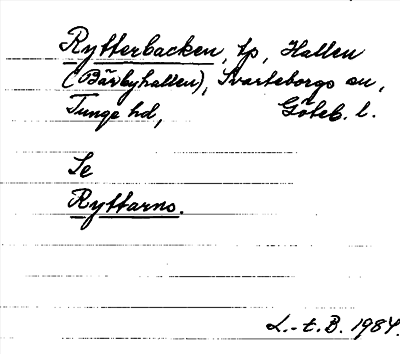 Rytterbacken, tp, Hallen
(Bärbyhallen), Svarteborgs sn,
Tunge hd, Göteb. l.
Se
Ryttarns.
L.-t. B. 1984.